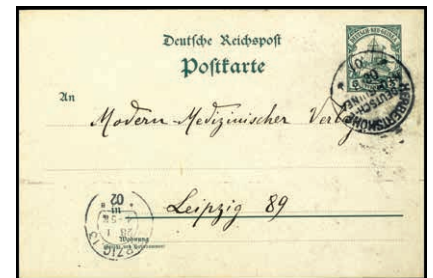 Deutsche Reichspost
Postkarte
An
Modern-Medizinischer Verlag
Leipzig 89
Wohnung
HERBERTSHÖHE
02